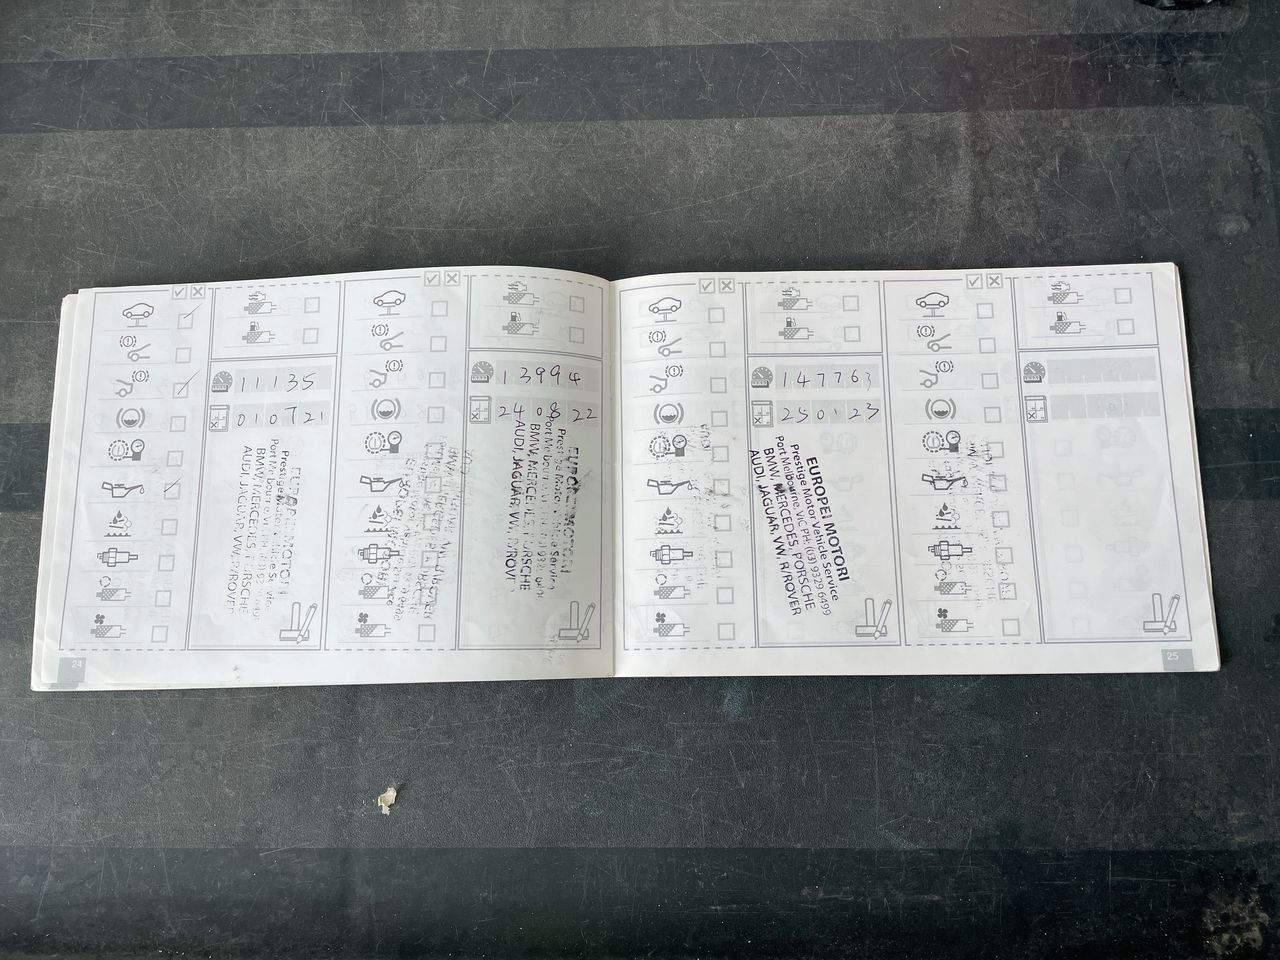 11135
010721
EUROPEI MOTORI
Prestige Motor Vehicle Service
Port Melbourne, VIC PH: (03) 9329
BMW, MERCEDES, PORSCHE
AUDI, JAGUAR, VW, R/ROVER
13994
240822
EUROPEI MOTORI
Prestige Motor Vehicle Service
Port Melbourne, VIC PH: (03) 9329 6499
BMW, MERCEDES, PORSCHE
AUDI, JAGUAR, VW, R/ROVER
24
147763
250123
EUROPEI MOTORI
Prestige Motor Vehicle Service
Port Melbourne, VIC PH: (03) 9329 6499
BMW, MERCEDES, PORSCHE
AUDI, JAGUAR, VW, R/ROVER
25